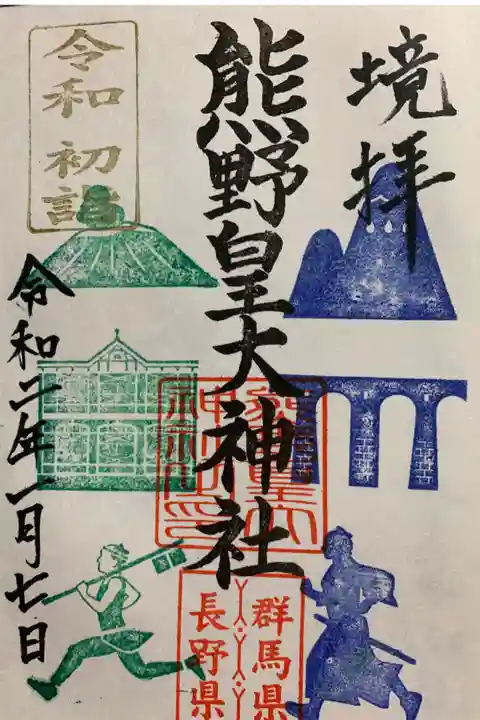 境拝
熊野皇大神社
令和
初詣
令和二年一月七日
群馬県
長野県